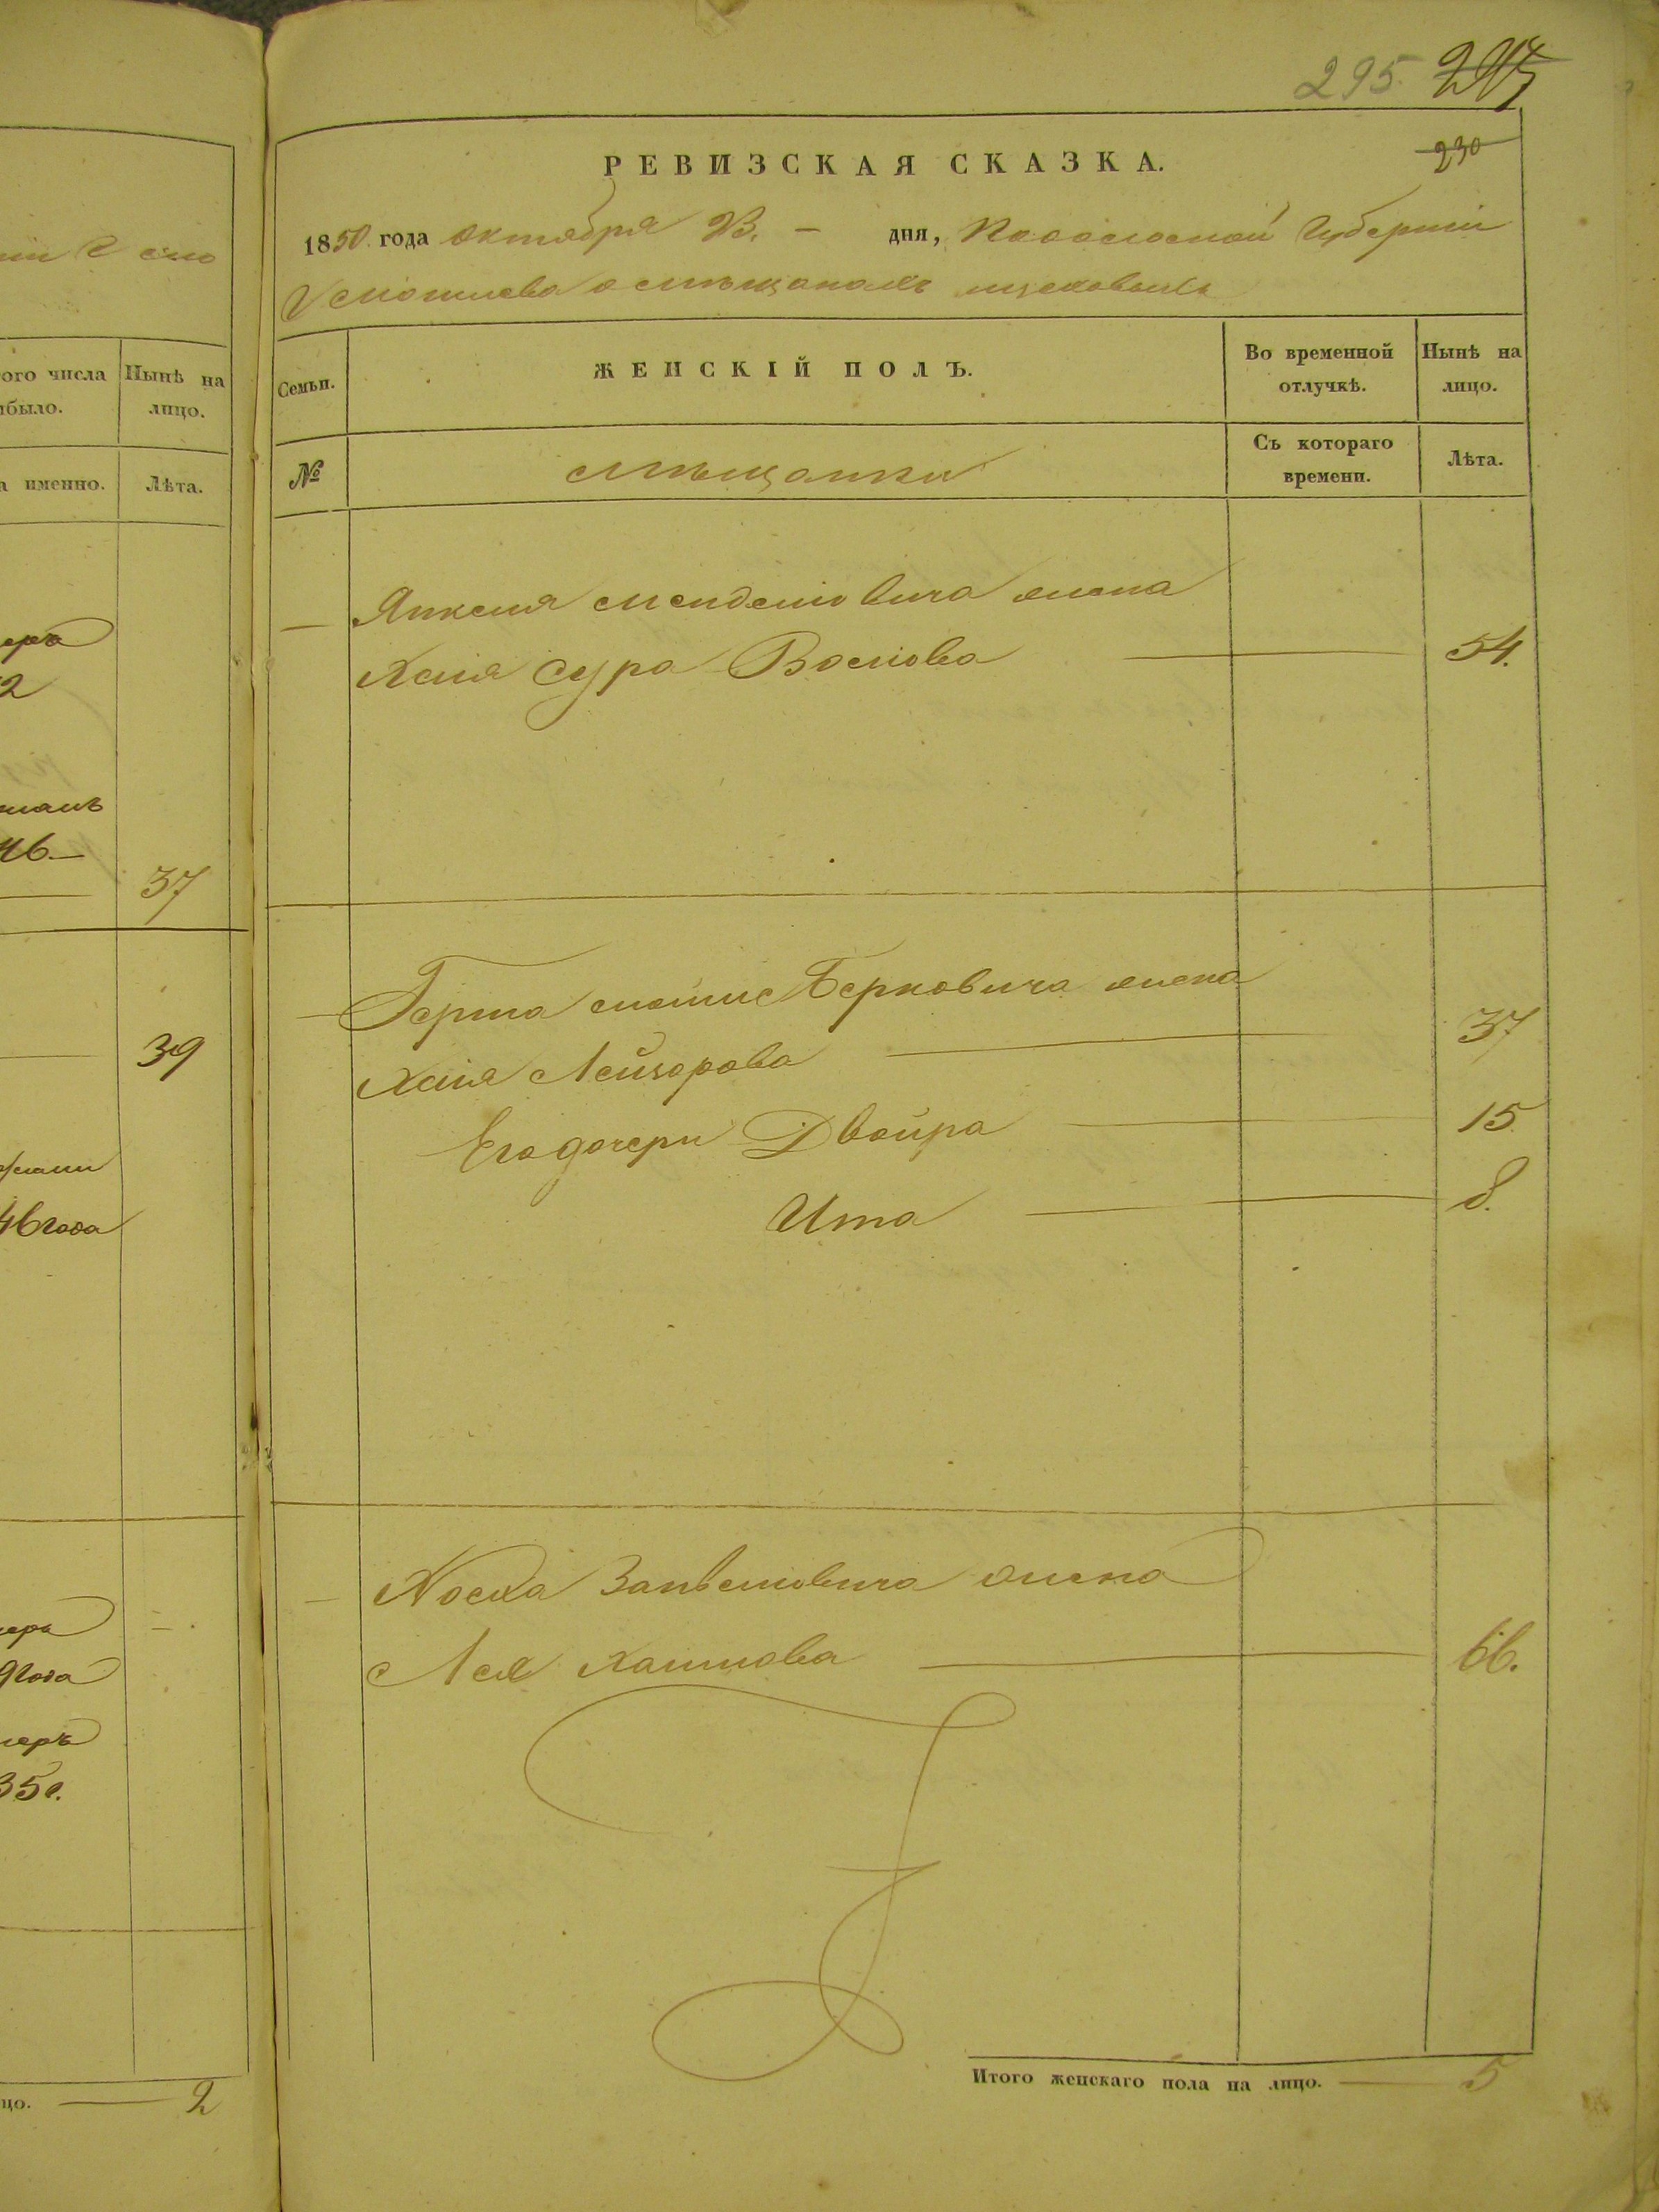 295
230
РЕВИЗСКАЯ СКАЗКА.
1850 года октября 23. – дня, Подольской Губерніи
Могилева о мѣщанахъ
ого числа
было.
Нынѣ на
лицо.
а именно.
Лѣта.
Семьи.
ЖЕНСКІЙ ПОЛЪ.
Во временной
отлучкѣ.
Нынѣ на
лицо.
№
мѣщанки
Съ котораго
времени.
Лѣта.
Янкеля Менделiовича жена
Хая Сура Волiова 54.
46
37
Герша Берковича жена
Хая Лейзорова 37
39
Его дочери Двойра 15
Ита 8.
46 года
Лея Хаимова 66.
года
35 г.
Итого женскаго пола на лицо. 5
цо. 2